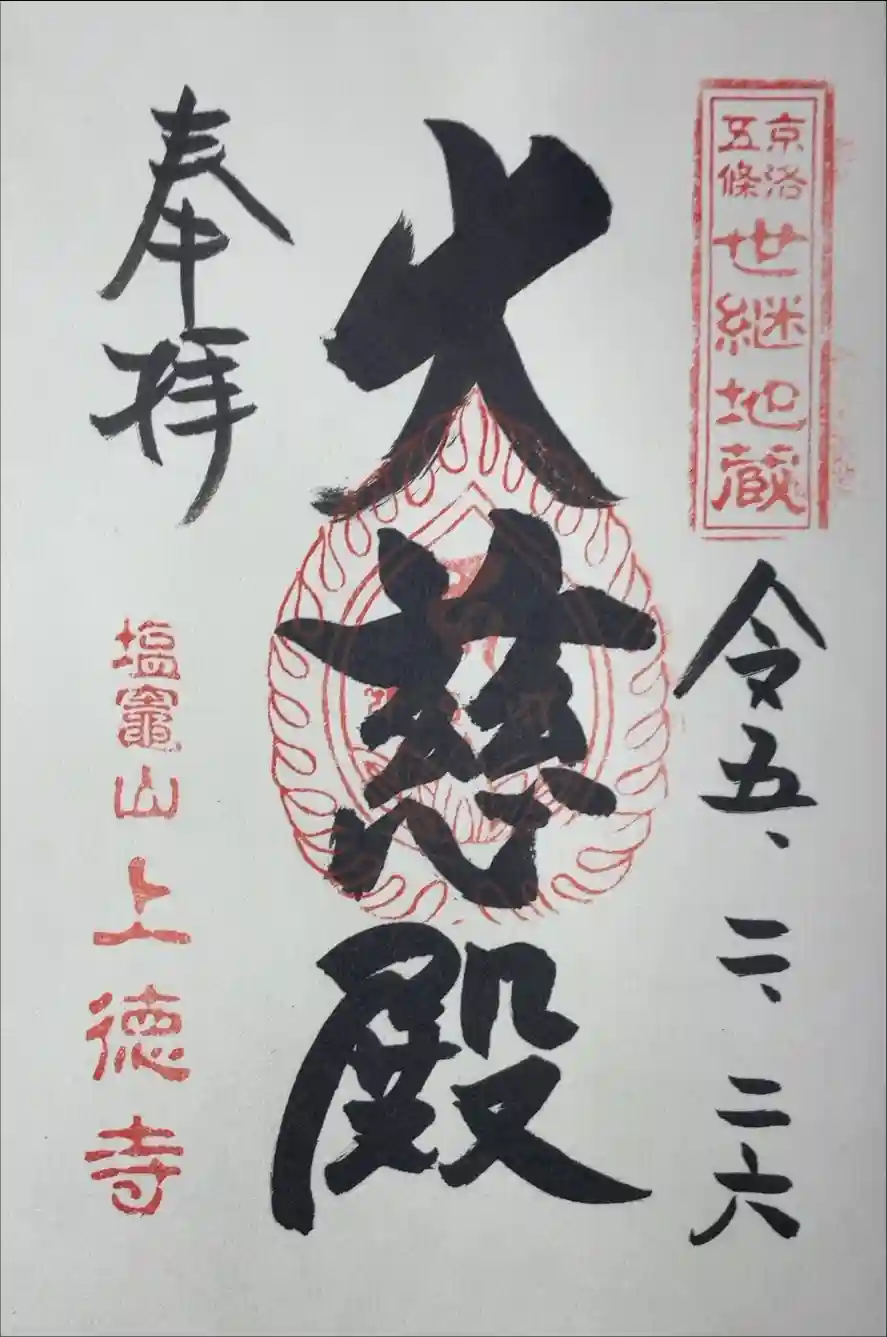 京洛
五條
世継地蔵
令五、二、二六
大慈殿
奉拝
塩竈山上徳寺